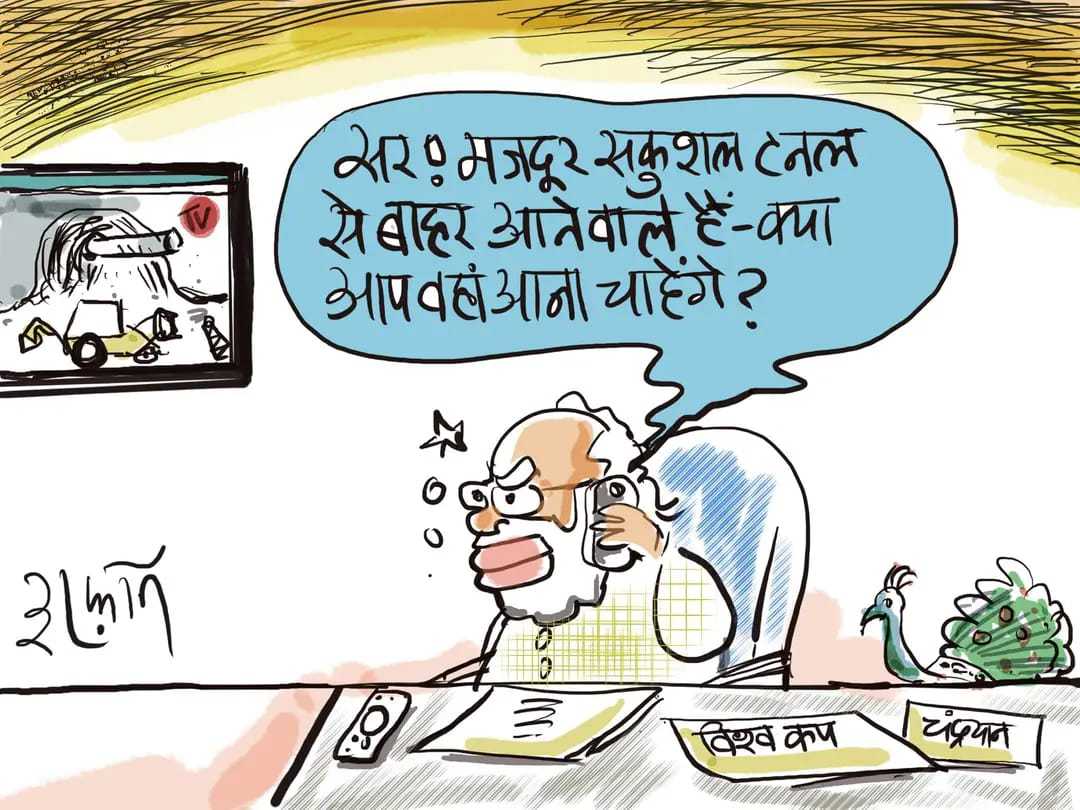 TV
सर! मजदूर सकुशल टनल
से बाहर आनेवाले हैं-क्या
आप वहां आना चाहेंगे?
इरफ़ान
विश्व कप
चंद्रयान